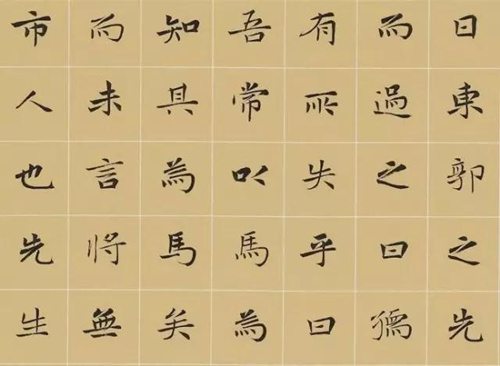 日東郭之先
而過之曰獨
有所失乎曰
吾常以馬為
知具為馬矣
而未言將無
市人也先生